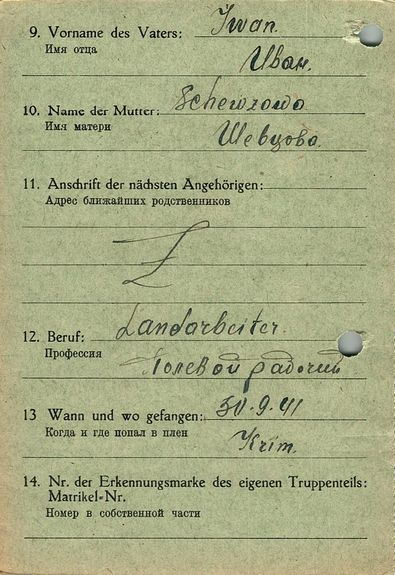 9. Vorname des Vaters: Iwan.
Имя отца
Иван.
10. Name der Mutter: Schewzowa
Имя матери
Шевцова.
11. Anschrift der nächsten Angehörigen:
Адрес ближайших родственников
12. Beruf: Landarbeiter.
Профессия
Полевой рабочий
13 Wann und wo gefangen: 30.9.41
Когда и где попал в плен
Krim.
14. Nr. der Erkennungsmarke des eigenen Truppenteils:
Matrikel-Nr.
Номер в собственной части